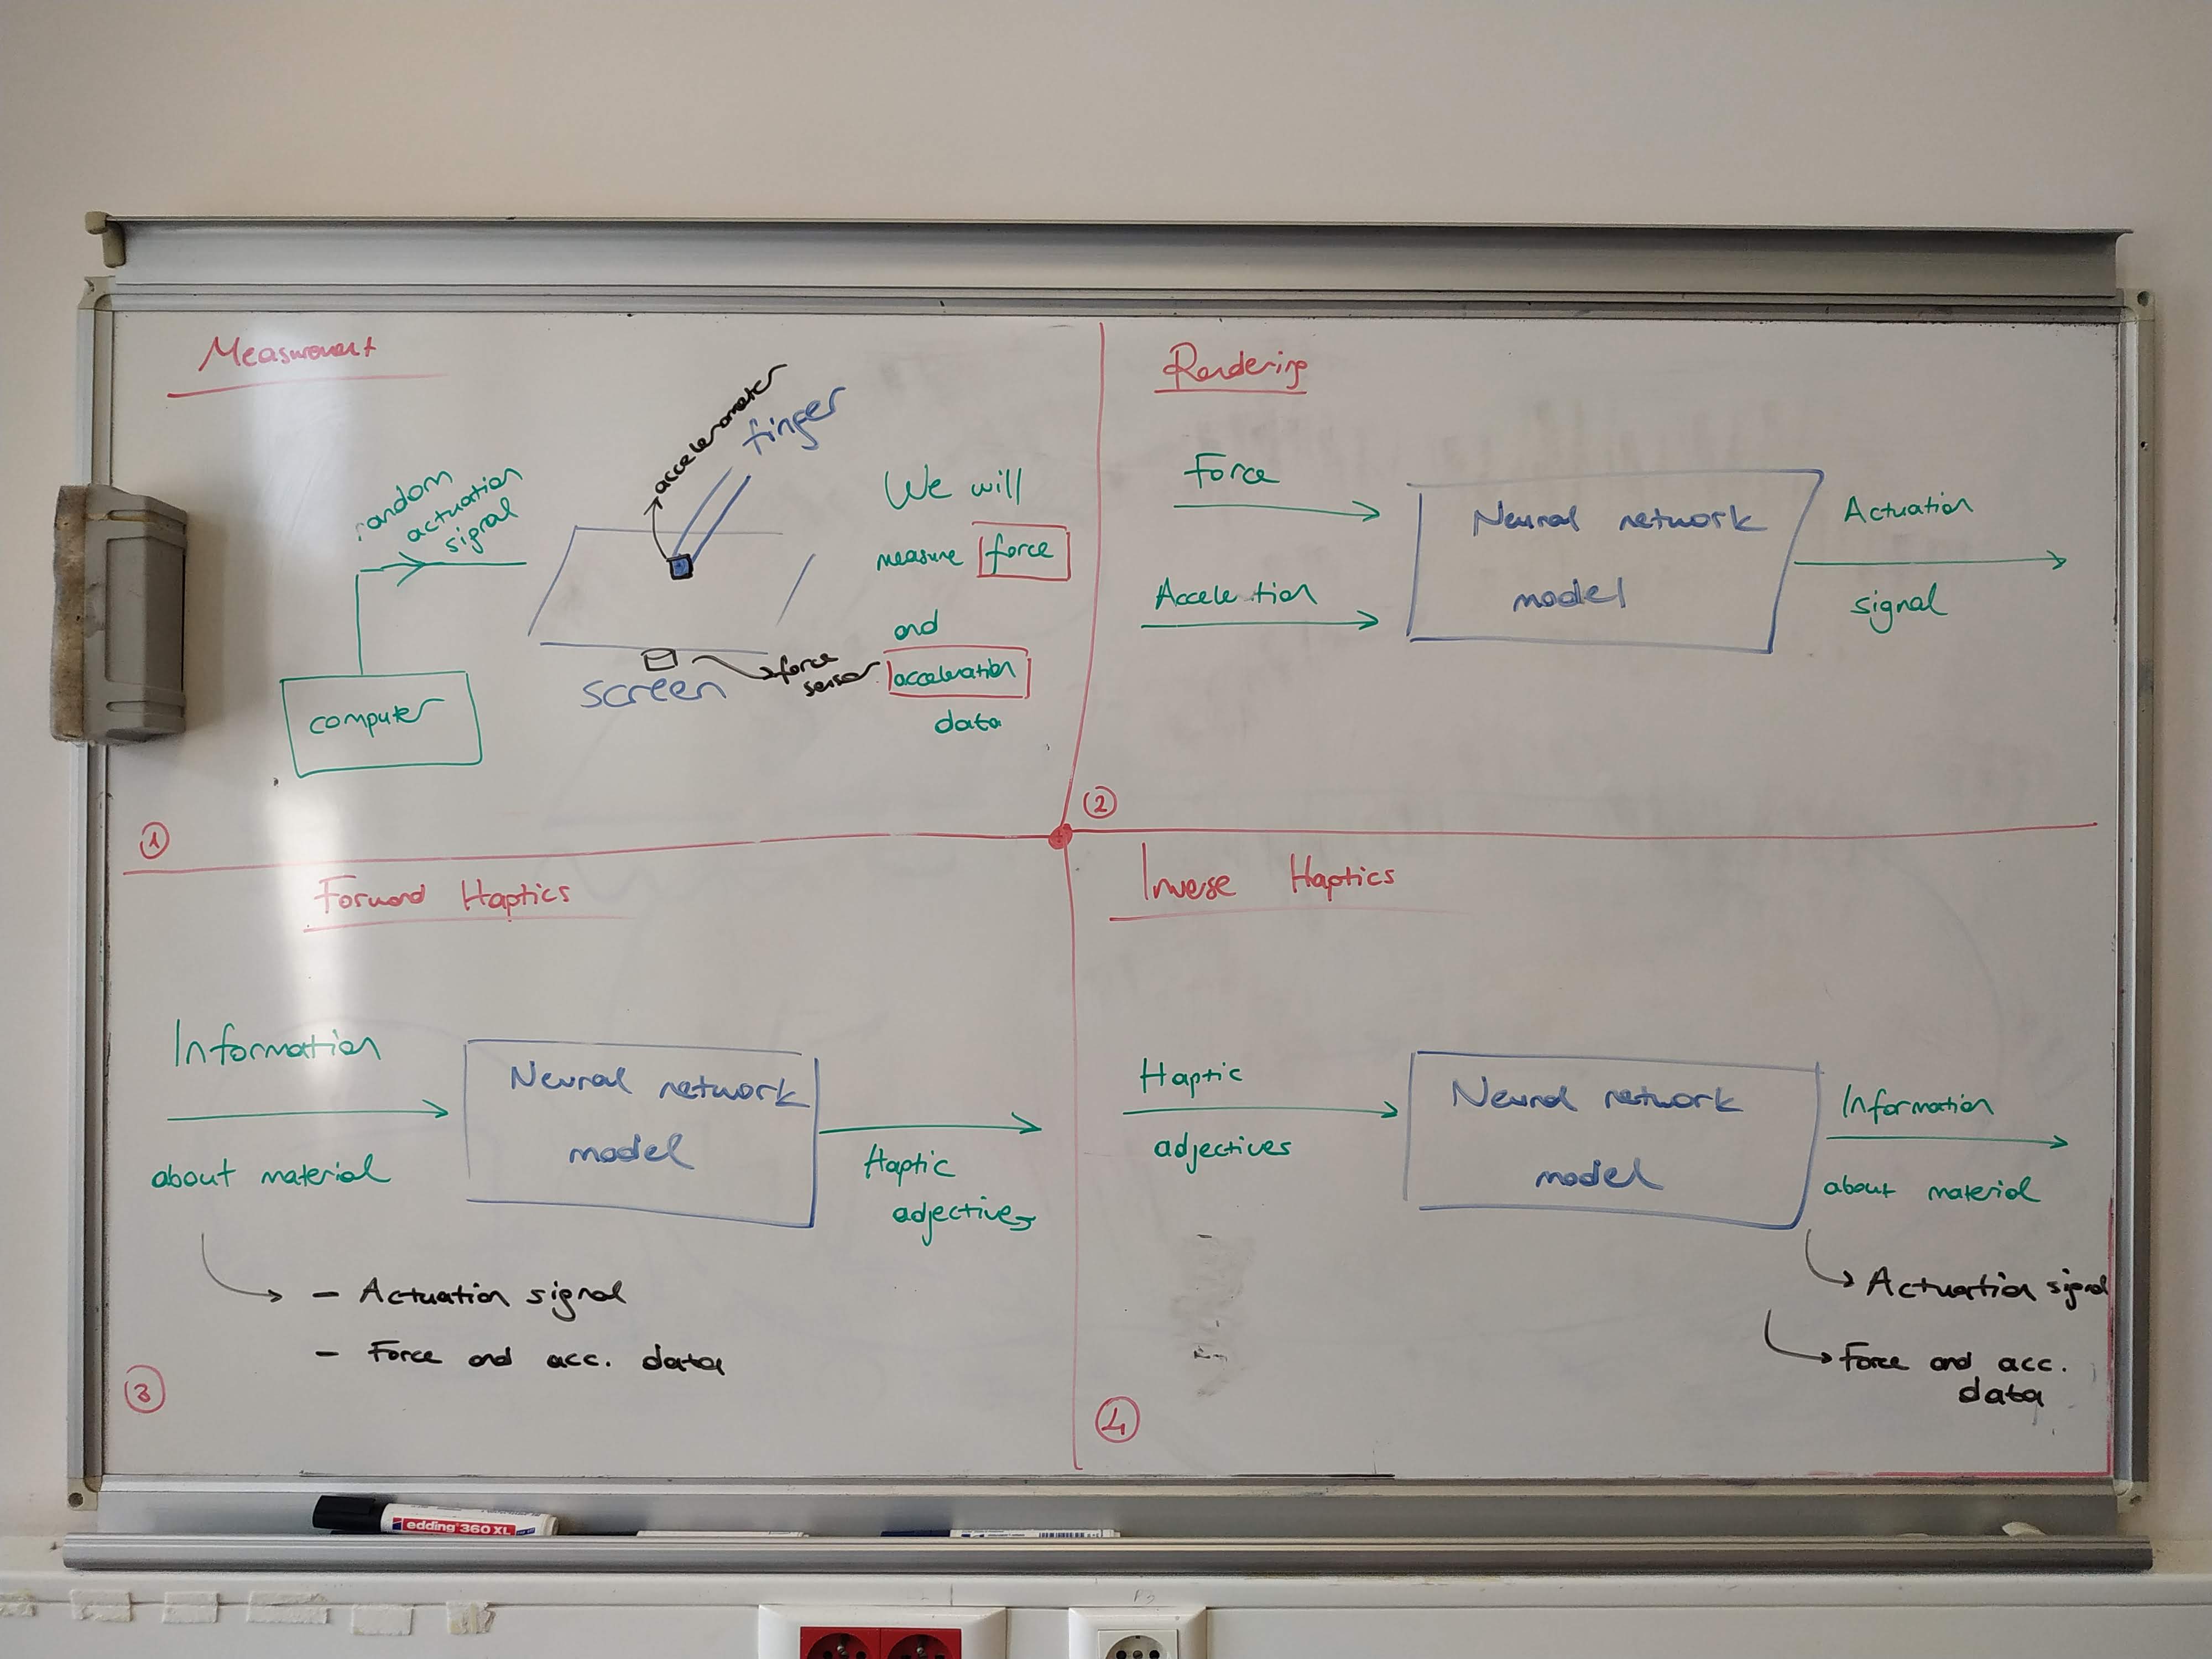 Measurement
accelerometer
finger
random
actuation
signal
We will
measure force
and
acceleration
data
force
sensor
screen
computer
1
Rendering
Force
Acceleration
Neural network
model
Actuation
signal
2
Forward Haptics
Information
about material
Neural network
model
Haptic
adjectives
- Actuation signal
- Force and acc. data
3
Inverse Haptics
Haptic
adjectives
Neural network
model
Information
about material
Actuation signal
Force and acc.
data
4
edding 360 XL